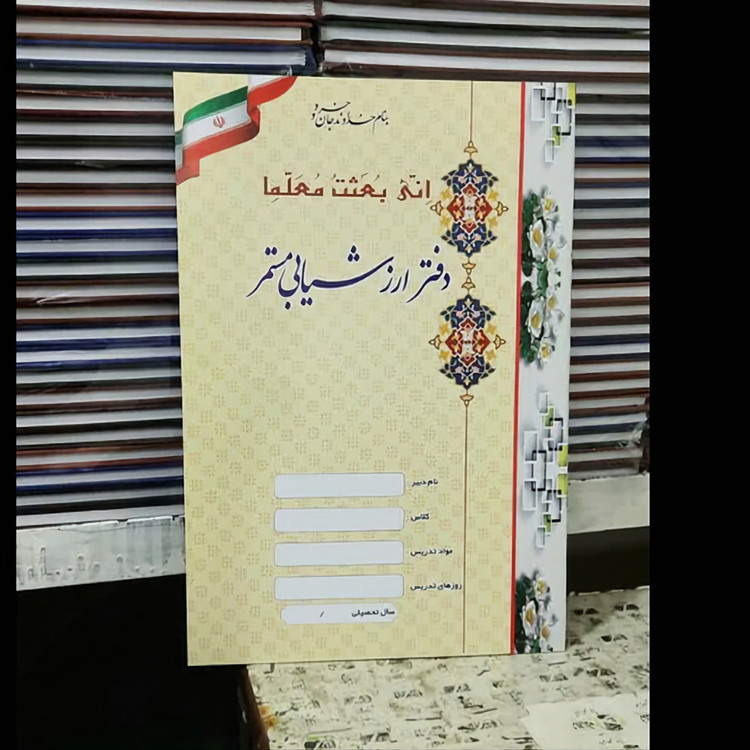 بنام خداوند جان و خرد
اِنّی بُعِثتُ مُعَلِّما
دفتر ارزشیابی مستمر
نام دبیر:
کلاس:
مواد تدریس:
روزهای تدریس:
سال تحصیلی /